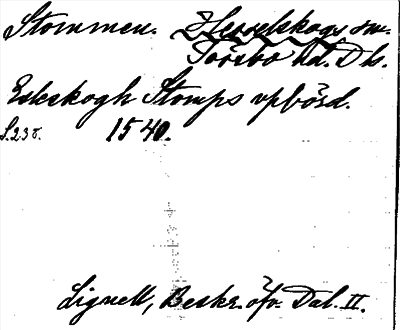 Stommen. Herrelskogs sn.
Torsbo hd. Dls.
Eskskogh Stomps vpbörd.
S. 238. 1540.
Lignell, Beskr. öfv. Dal. II.